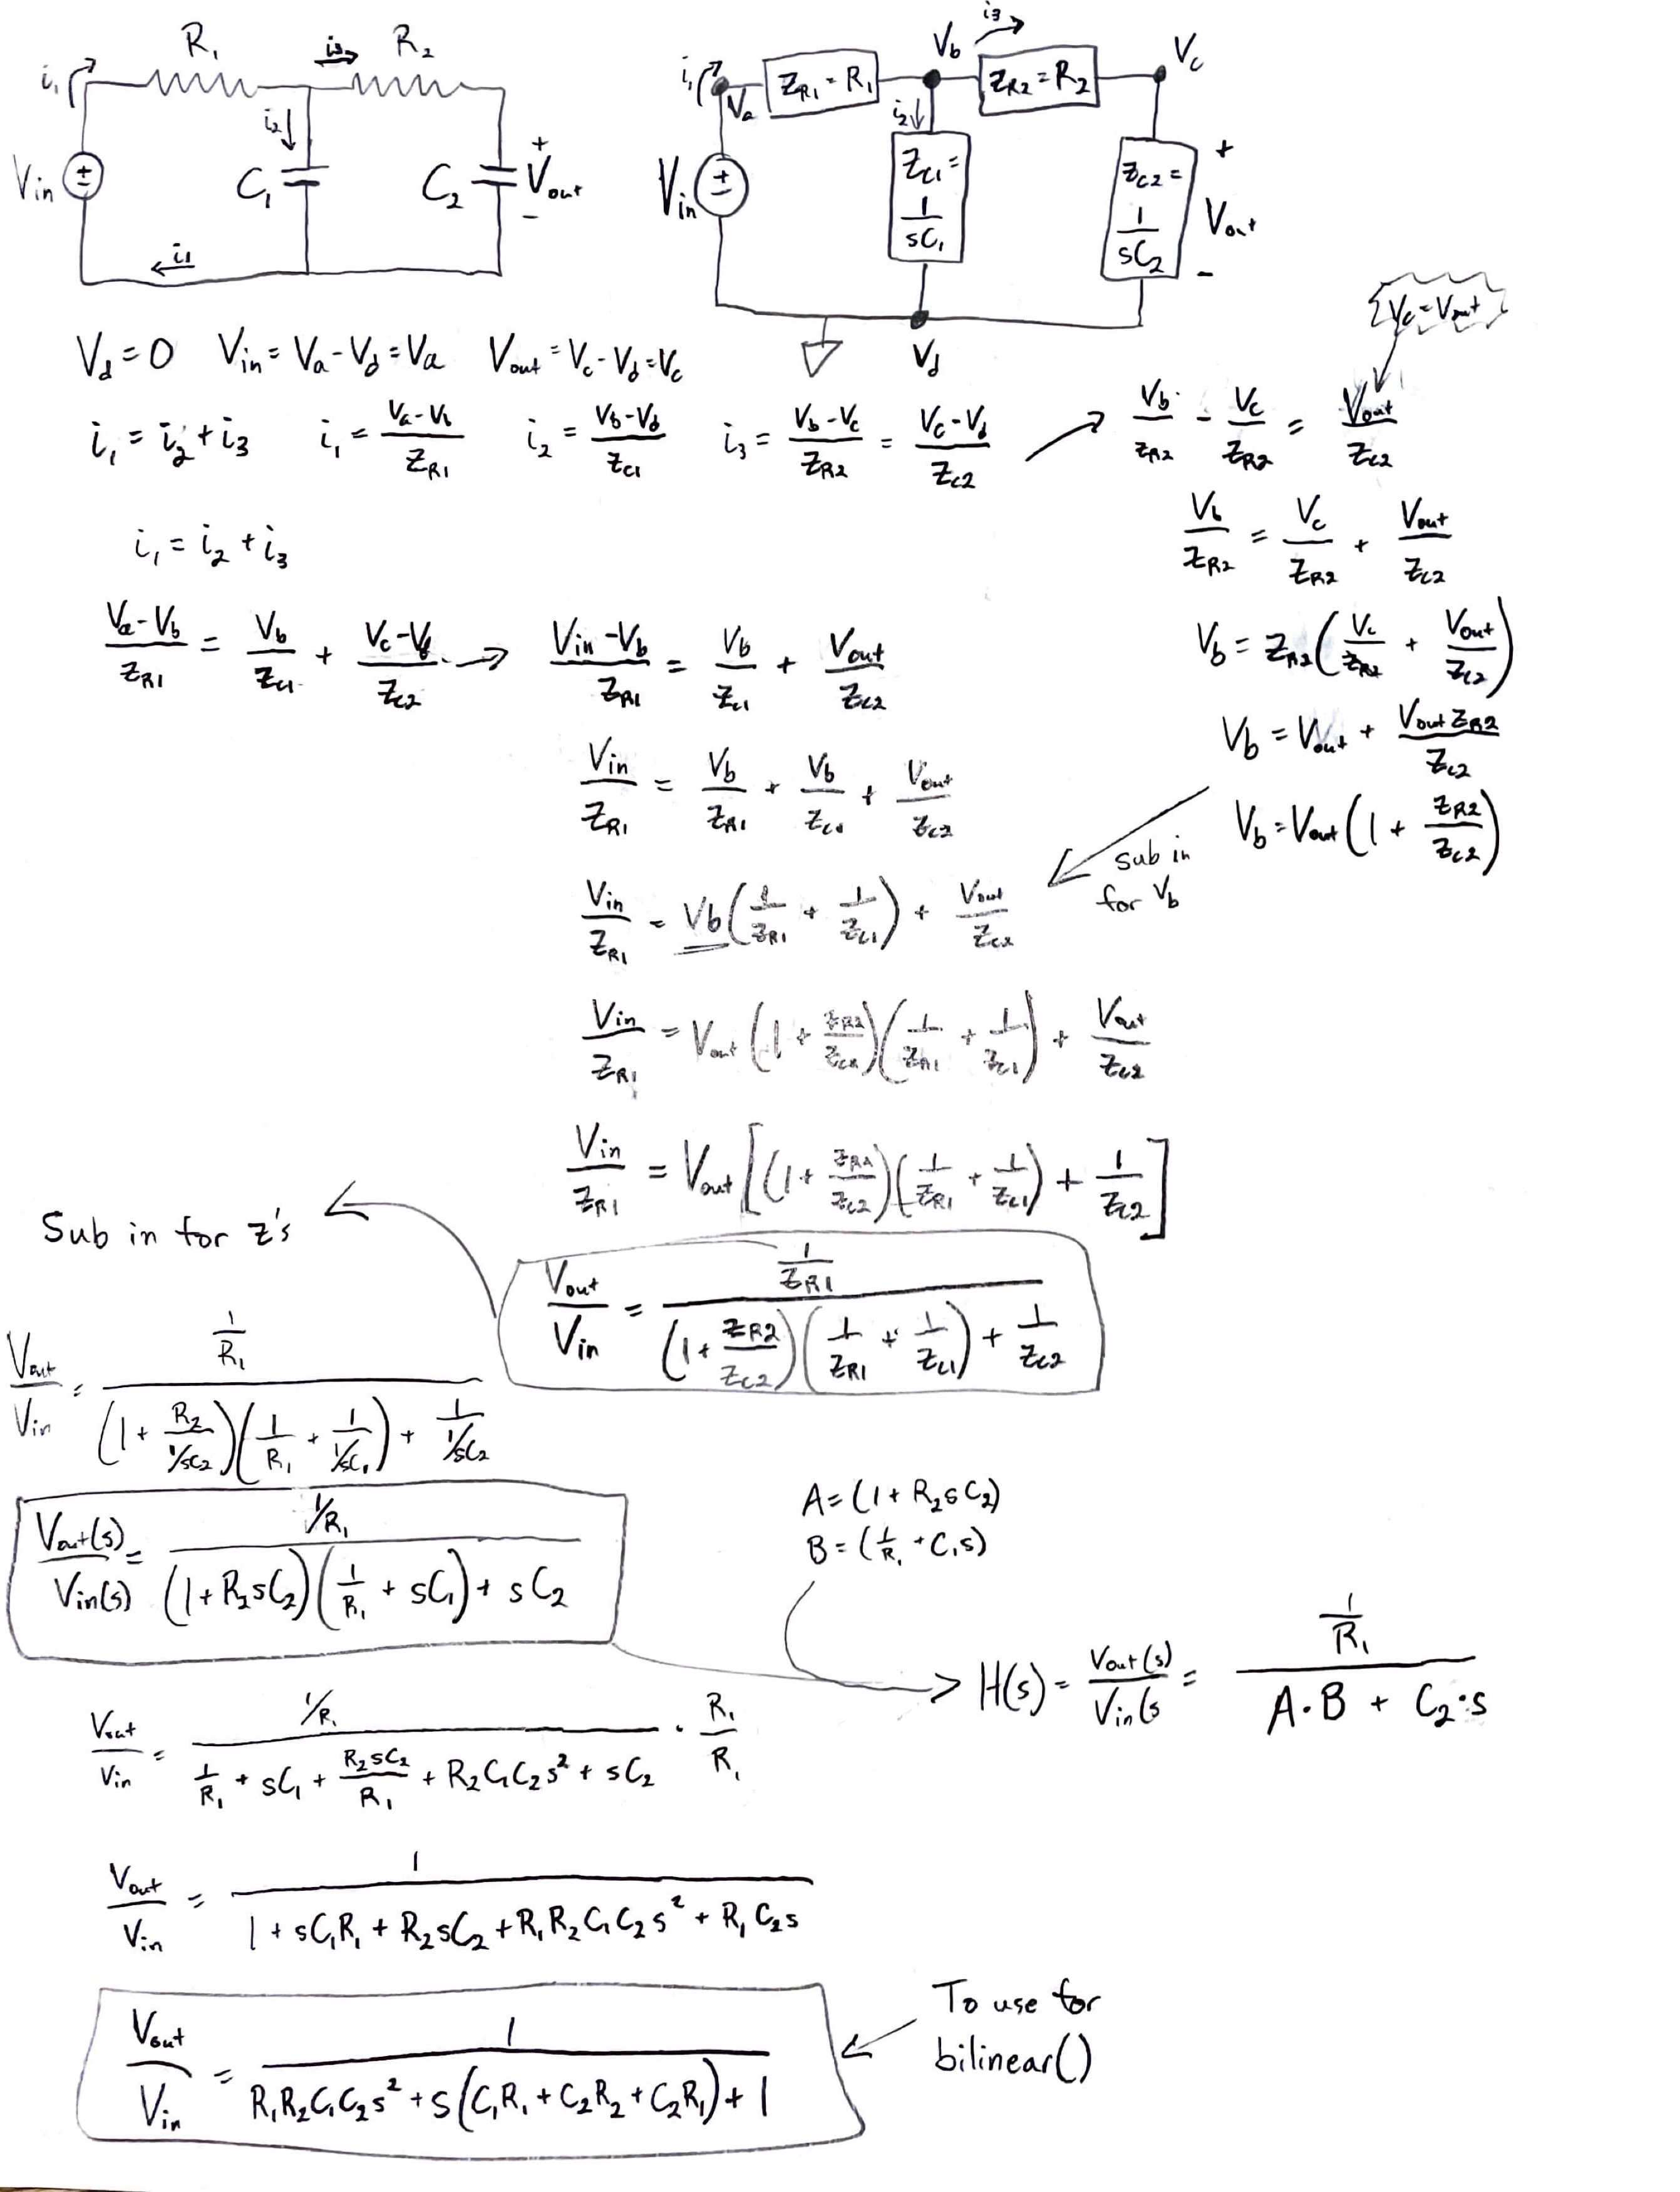 R₁ i₃ R₂
i₁
i₂
Vin ± C₁ C₂ + Vout -
i₁
i₃
i₁ Va Z_R1 = R₁ Vb Z_R2 = R₂ Vc
i₂
Vin ± Z_C1 = 1/sC₁ Z_C2 = 1/sC₂ + Vout -
Vd
Vc = Vout
Vd = 0 Vin = Va - Vd = Va Vout = Vc - Vd = Vc
i₁ = i₂ + i₃ i₁ = (Va - Vb)/Z_R1 i₂ = (Vb - Vd)/Z_C1 i₃ = (Vb - Vc)/Z_R2 = (Vc - Vd)/Z_C2 → Vb/Z_R2 - Vc/Z_R2 = Vout/Z_C2
Vb/Z_R2 = Vc/Z_R2 + Vout/Z_C2
Vb = Z_R2(Vc/Z_R2 + Vout/Z_C2)
Vb = Vout + Vout Z_R2/Z_C2
Vb = Vout(1 + Z_R2/Z_C2)
sub in
for Vb
i₁ = i₂ + i₃
(Va - Vb)/Z_R1 = Vb/Z_C1 + (Vc - Vd)/Z_C2 → (Vin - Vb)/Z_R1 = Vb/Z_C1 + Vout/Z_C2
Vin/Z_R1 = Vb/Z_R1 + Vb/Z_C1 + Vout/Z_C2
Vin/Z_R1 = Vb(1/Z_R1 + 1/Z_C1) + Vout/Z_C2
Vin/Z_R1 = Vout(1 + Z_R2/Z_C2)(1/Z_R1 + 1/Z_C1) + Vout/Z_C2
Vin/Z_R1 = Vout[(1 + Z_R2/Z_C2)(1/Z_R1 + 1/Z_C1) + 1/Z_C2]
Vout/Vin = (1/Z_R1)/((1 + Z_R2/Z_C2)(1/Z_R1 + 1/Z_C1) + 1/Z_C2)
Sub in for z's
Vout/Vin = (1/R₁)/((1 + R₂/(1/sC₂))(1/R₁ + 1/(1/sC₁)) + 1/(1/sC₂))
Vout(s)/Vin(s) = (1/R₁)/((1 + R₂sC₂)(1/R₁ + sC₁) + sC₂)
A = (1 + R₂sC₂)
B = (1/R₁ + C₁s)
H(s) = Vout(s)/Vin(s = (1/R₁)/(A·B + C₂·s)
Vout/Vin = (1/R₁)/(1/R₁ + sC₁ + R₂sC₂/R₁ + R₂C₁C₂s² + sC₂) · R₁/R₁
Vout/Vin = 1/(1 + sC₁R₁ + R₂sC₂ + R₁R₂C₁C₂s² + R₁C₂s)
Vout/Vin = 1/(R₁R₂C₁C₂s² + s(C₁R₁ + C₂R₂ + C₂R₁) + 1)
To use for
bilinear()